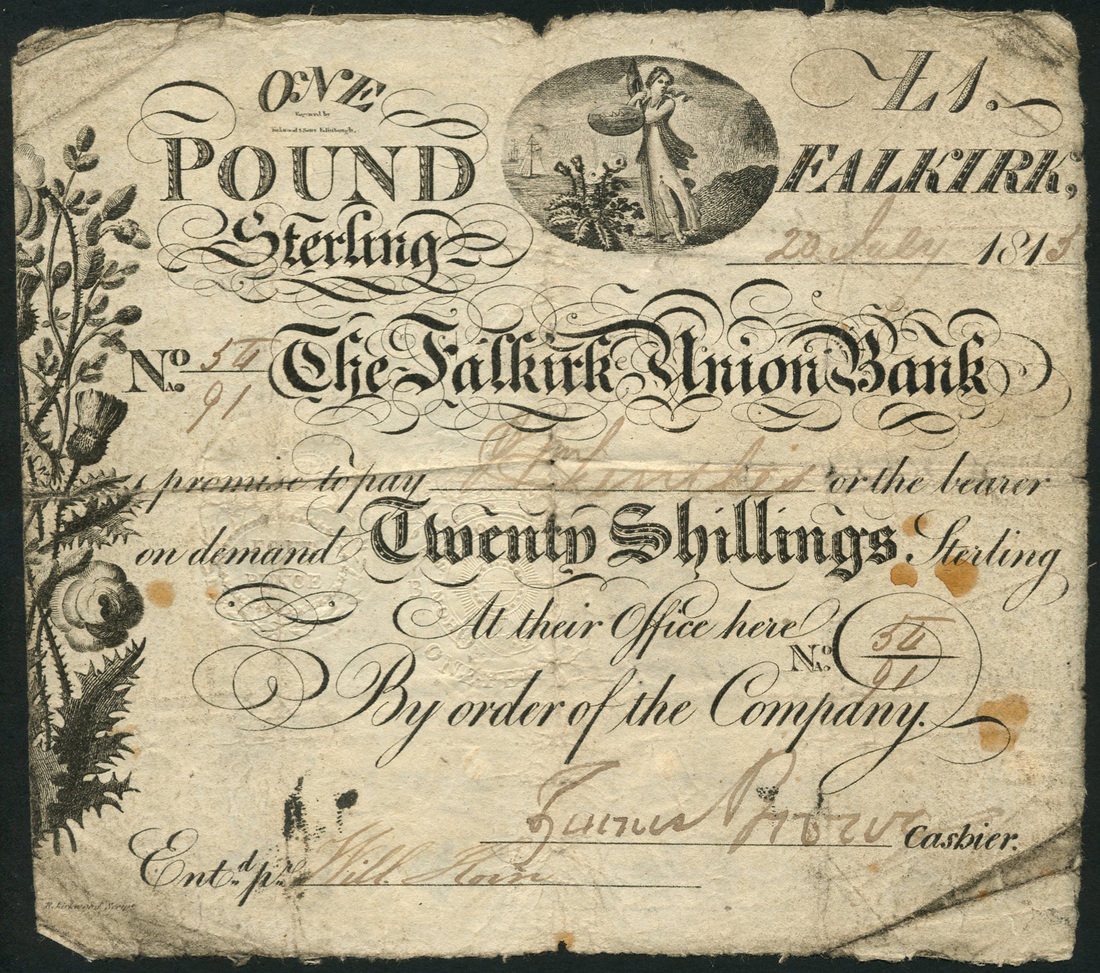 ONE
Engraved by
Kirkwood & Sons Edinburgh.
POUND
Sterling
£1.
FALKIRK,
20 July 1815
No. 54/91 The Falkirk Union Bank
promise to pay or the bearer
on demand Twenty Shillings Sterling
At their Office here
No. 54/91
By order of the Company.
Cashier.
Entd. pr. Will.
R. Kirkwood Script